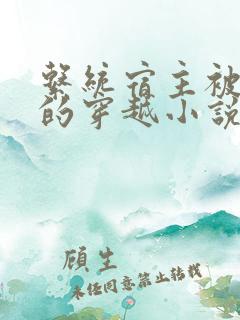 繫統宿主被
的穿越小說
頋生
未經同意禁止轉載